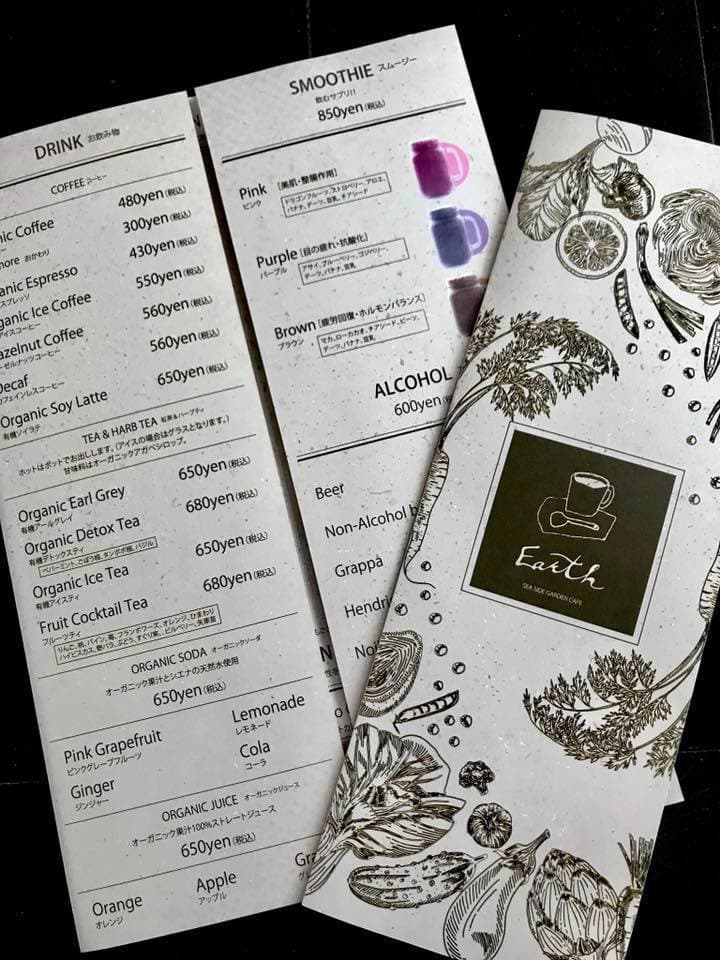 DRINK お飲み物
COFFEE コーヒー
Coffee 480yen(税込)
おかわり 300yen(税込)
Espresso 430yen(税込)
Ice Coffee 550yen(税込)
アイスコーヒー
Coffee 560yen(税込)
ーゼルナッツコーヒー
Decaf 560yen(税込)
カフェインレスコーヒー
Organic Soy Latte 650yen(税込)
有機ソイラテ
TEA & HARB TEA 紅茶&ハーブティ
ホットはポットでお出しします。(アイスの場合はグラスとなります。)
甘味料はオーガニックアガベシロップ。
Organic Earl Grey 650yen(税込)
有機アールグレイ
Organic Detox Tea 680yen(税込)
有機デトックスティ
ペパーミント、ごぼう根、タンポポ根、バジル
Organic Ice Tea 650yen(税込)
有機アイスティ
Fruit Cocktail Tea 680yen(税込)
フルーツティ
りんご、桃、パイン、苺、フランボワーズ、オレンジ、ひまわり
ハイビスカス、野バラ、ぶどう、すぐり実、ビルベリー、矢車菊
ORGANIC SODA オーガニックソーダ
オーガニック果汁とシエナの天然水使用
650yen(税込)
Pink Grapefruit Lemonade
ピンクグレープフルーツ レモネード
Ginger Cola
ジンジャー コーラ
ORGANIC JUICE オーガニックジュース
オーガニック果汁100%ストレートジュース
650yen(税込)
Orange Apple
オレンジ アップル
SMOOTHIE スムージー
飲むサプリ!!
850yen(税込)
Pink [美肌・整腸作用]
ピンク
ドラゴンフルーツ、ストロベリー、アロエ、
バナナ、デーツ、豆乳、チアシード
Purple [目の疲れ・抗酸化]
パープル
アサイ、ブルーベリー、ゴジベリー、
デーツ、バナナ、豆乳
Brown [疲労回復・ホルモンバランス]
ブラウン
マカ、ローカカオ、チアシード、ビーツ、
デーツ、バナナ、豆乳
ALCOHOL
600yen
Beer
Non-Alcohol
Grappa
Earth
SEA SIDE GARDEN CAFE